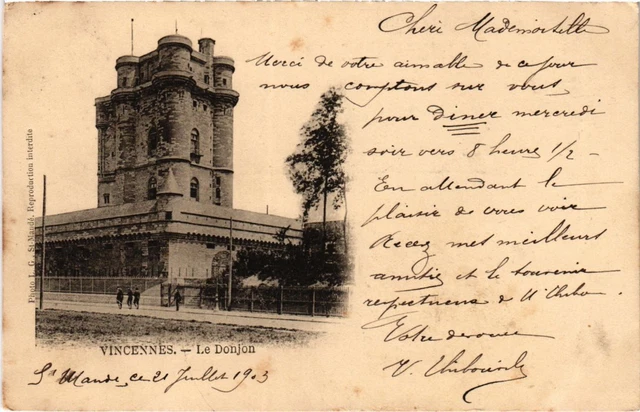 Cheri Mademoiselle
Merci de votre aimable de ce jour
nous comptons sur vous
pour Diner mercredi
soir vers 8 heures 1/2 -
En attendant le
plaisir de vous voir
Recez mes meilleurs
amitiés et le souvenir
respectueux de
Votre devouée
V.
Photo L. G., St-Mandé. Reproduction interdite
VINCENNES. — Le Donjon
St Mandé, ce 21 Juillet 1903